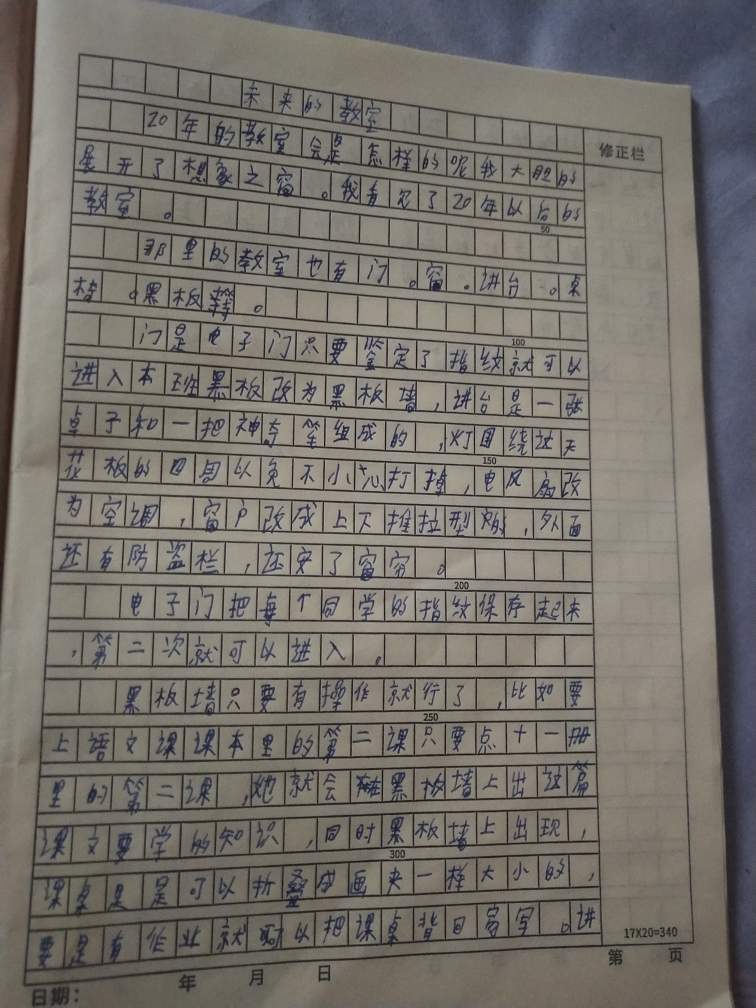 未来的教室
修正栏
20年的教室会是怎样的呢我大胆的
展开了想象之窗。我看见了20年以后的
教室。
50
那里的教室也有门。窗。讲台。桌
椅。黑板等。
100
门是电子门只要鉴定了指纹就可以
进入本班黑板改为黑板墙,讲台是一张
桌子和一把神奇笔组成的,灯围绕过天
花板的四周以免不小心打掉,电风扇改
150
为空调,窗户改成上下推拉型的,外面
还有防盗栏,还安了窗帘。
200
电子门把每个同学的指纹保存起来
,第二次就可以进入。
黑板墙只要有操作就行了,比如要
250
上语文课课本里的第二课只要点十一册
里的第二课,她就会在黑板墙上出这篇
课文要学的知识,同时黑板墙上出现,
300
课桌是是可以折叠成画夹一样大小的,
要是有作业就可以把课桌背回家写。讲
17X20=340
日期: 年 月 日
第 页